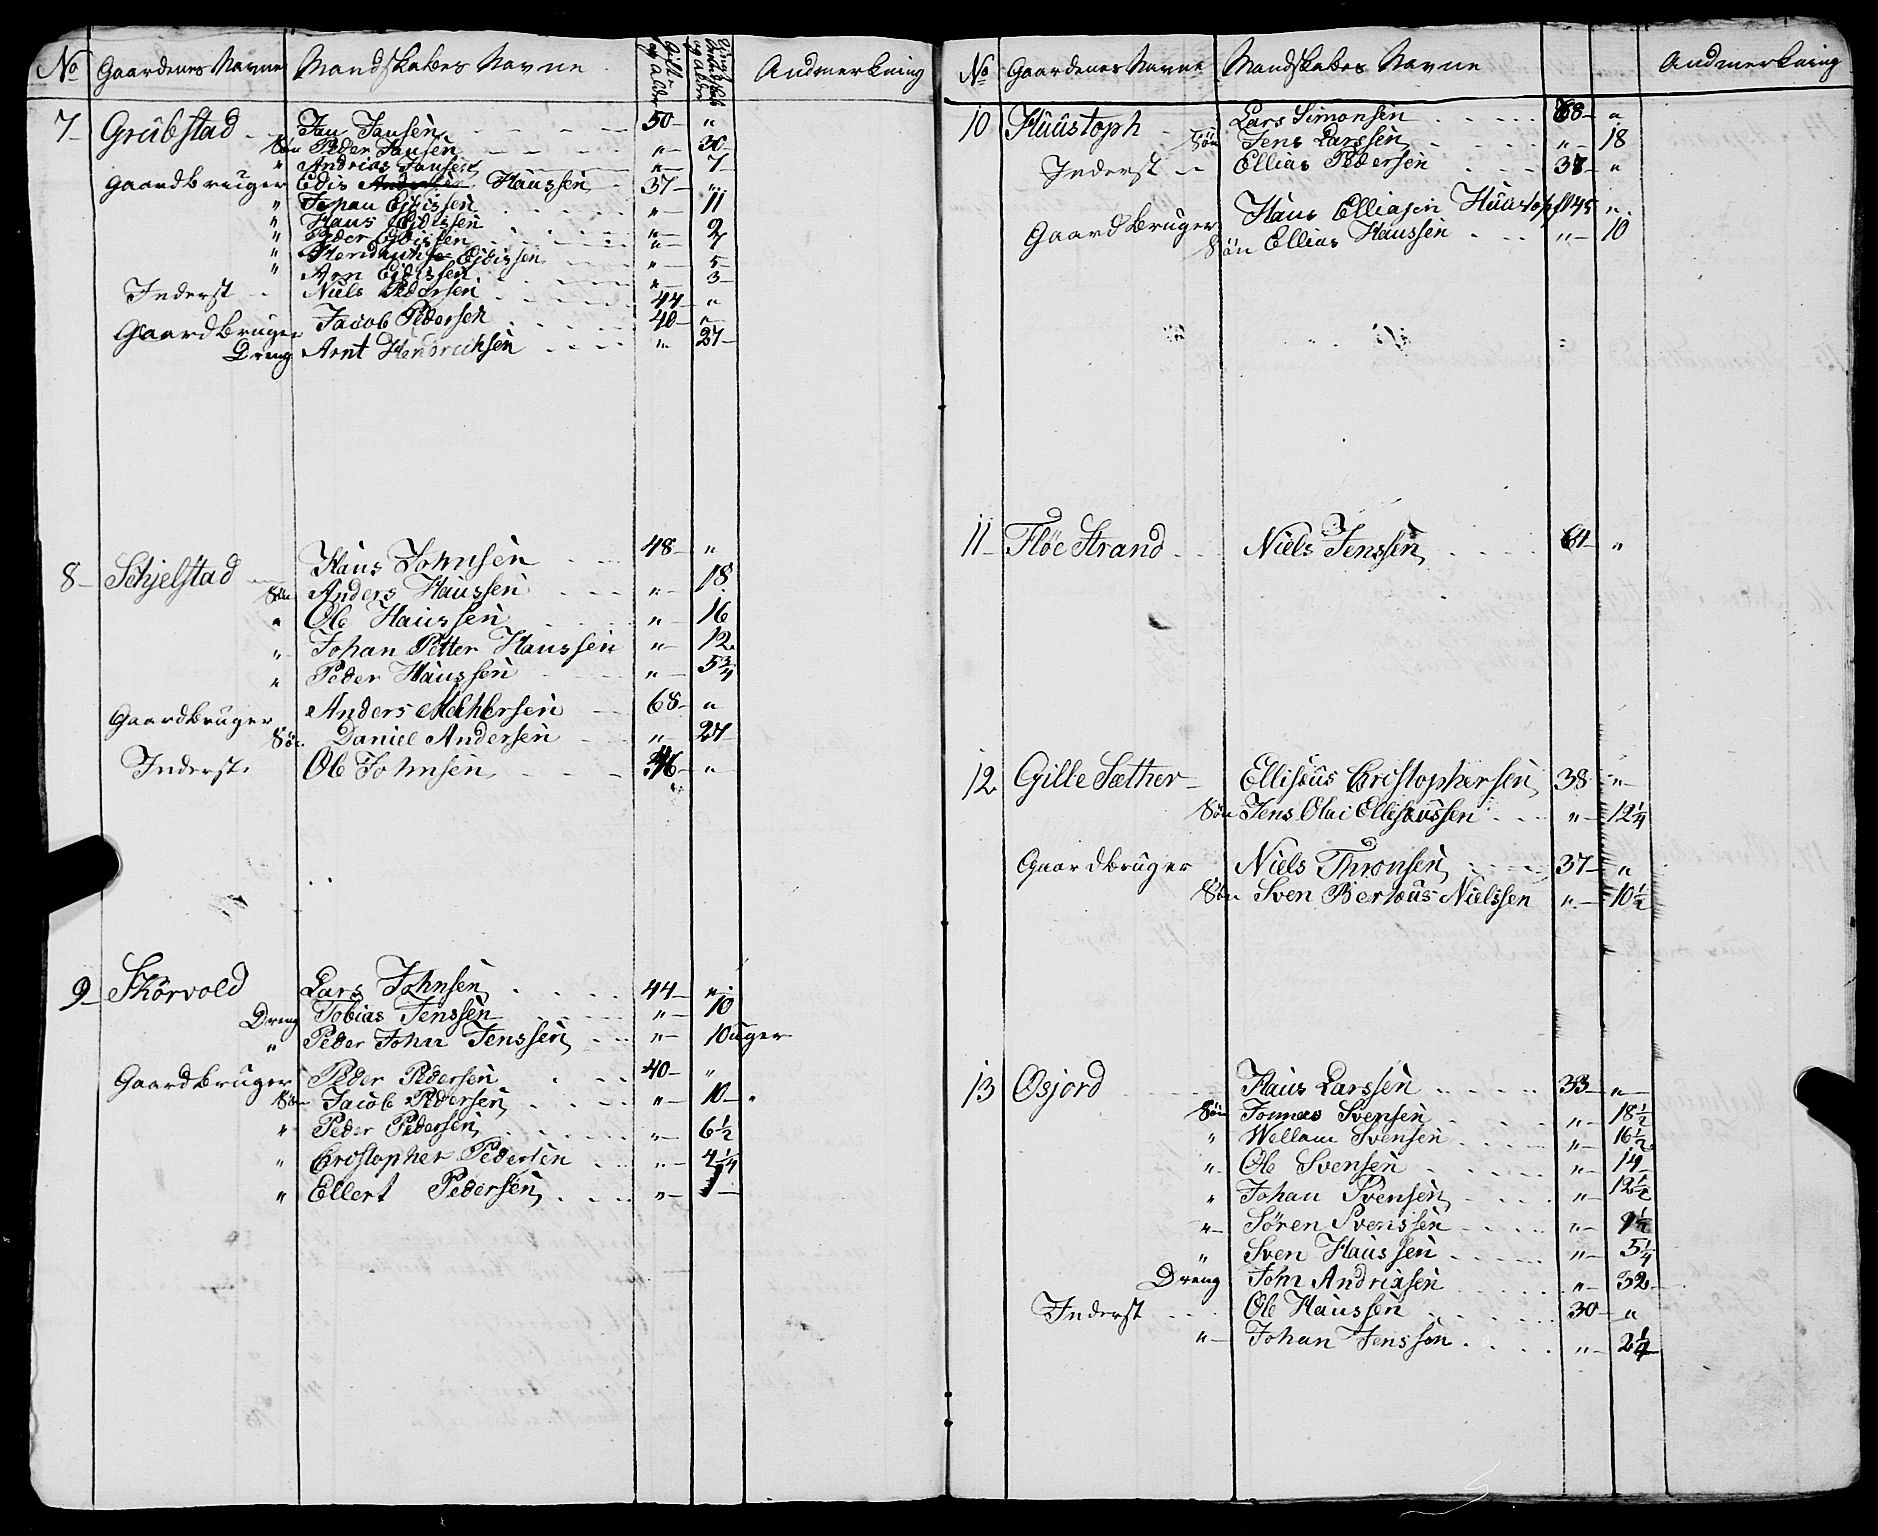 No Gaardenes Navne Mandskabes Navne Gift og alder Anmerkning
7 Grübstad Jan Jansen 50 "
Søn Peder Jansen " 30
" Andrias Jansen " 7
Gaardbruger Edis Hanssen 37 "
" Johan Edissen " 11
" Hans Edissen " 2
" Peder Edissen " 7
" Hendrich Edissen " 5
" Arn Edissen " 3
Inderst Niels Pedersen 44 "
Gaardbruger Jacob Pedersen 40 "
Dreng Arnt Hendrichsen " 27
8 Schjelstad Hans Johnsen 48 "
Søn Anders Hanssen " 18
" Ole Hanssen " 16
" Johan Petter Hanssen " 12
" Peder Hanssen " 5 3/4
Gaardbruger Anders 68 "
Søn Daniel Andersen " 27
Inderst Ole Johnsen "
9 Skørvold Lars Johnsen 44 "
Dreng Tobias Jenssen " 10
" Peder John Jenssen " 10 uger
Gaardbruger Peder Pedersen 40 "
Søn Jacob Pedersen " 10 "
" Peder Pedersen " 6 1/2
" Christopher Pedersen " 4 1/4
" Ellert Pedersen " 1
No Gaardenes Navne Mandskabes Navne Anmerkning
10 Huüstoph Lars Simonsen 68 "
Søn Jens Larssen " 18
Inderst Ellias Pedersen 37 "
Gaardbruger Hans Elliasen Huustoph 45 "
Søn Ellias Hanssen " 10
11 Fløe Strand Niels Jenssen 64 "
12 Gille Sæther Ellisæus Christophersen 38 "
Søn Jens Olai Ellisæussen " 12 1/4
Gaardbruger Niels Thronsen 37 "
Søn Sven Bertæus Nielssen " 10 1/2
13 Osjord Hans Larssen 33 "
Søn Tommas Svensen " 18 1/2
" Wellam Svensen " 16 1/2
" Ole Svensen " 14
" Johan Svensen " 12 1/2
" Søren Svenssen " 9 1/2
" Sven Hanssen " 5 1/4
Dreng John Andriasen " 32
Inderst Ole Hanssen 30 "
" Johan Jenssen " 2 1/4